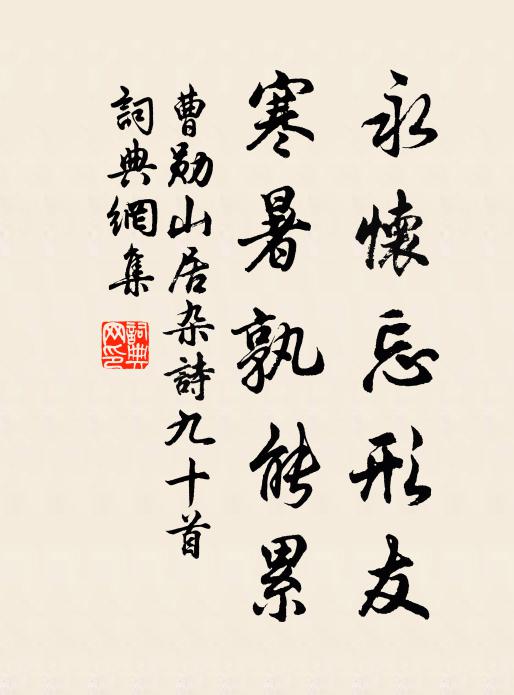 永懷忘形友
寒暑孰能累
曹勛山居杂詩九十首
詞典網集
詞典网印